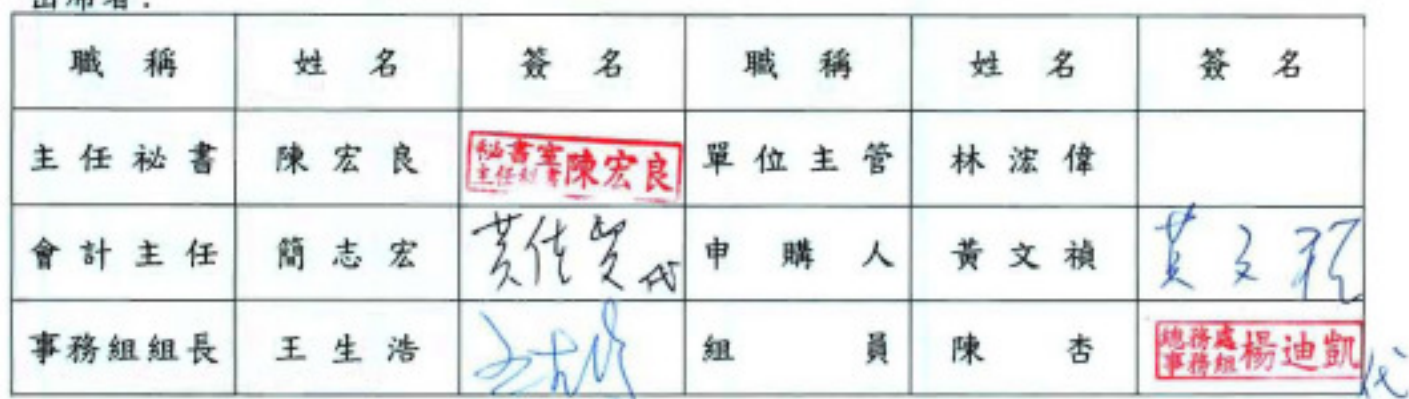 出席者：
職稱 姓名 簽名 職稱 姓名 簽名
主任祕書 陳宏良 秘書室主任秘書陳宏良 單位主管 林浤偉
會計主任 簡志宏 黃佳賢代 申購人 黃文禎 黃文禎
事務組組長 王生浩 組員 陳杏 總務處事務組楊迪凱代